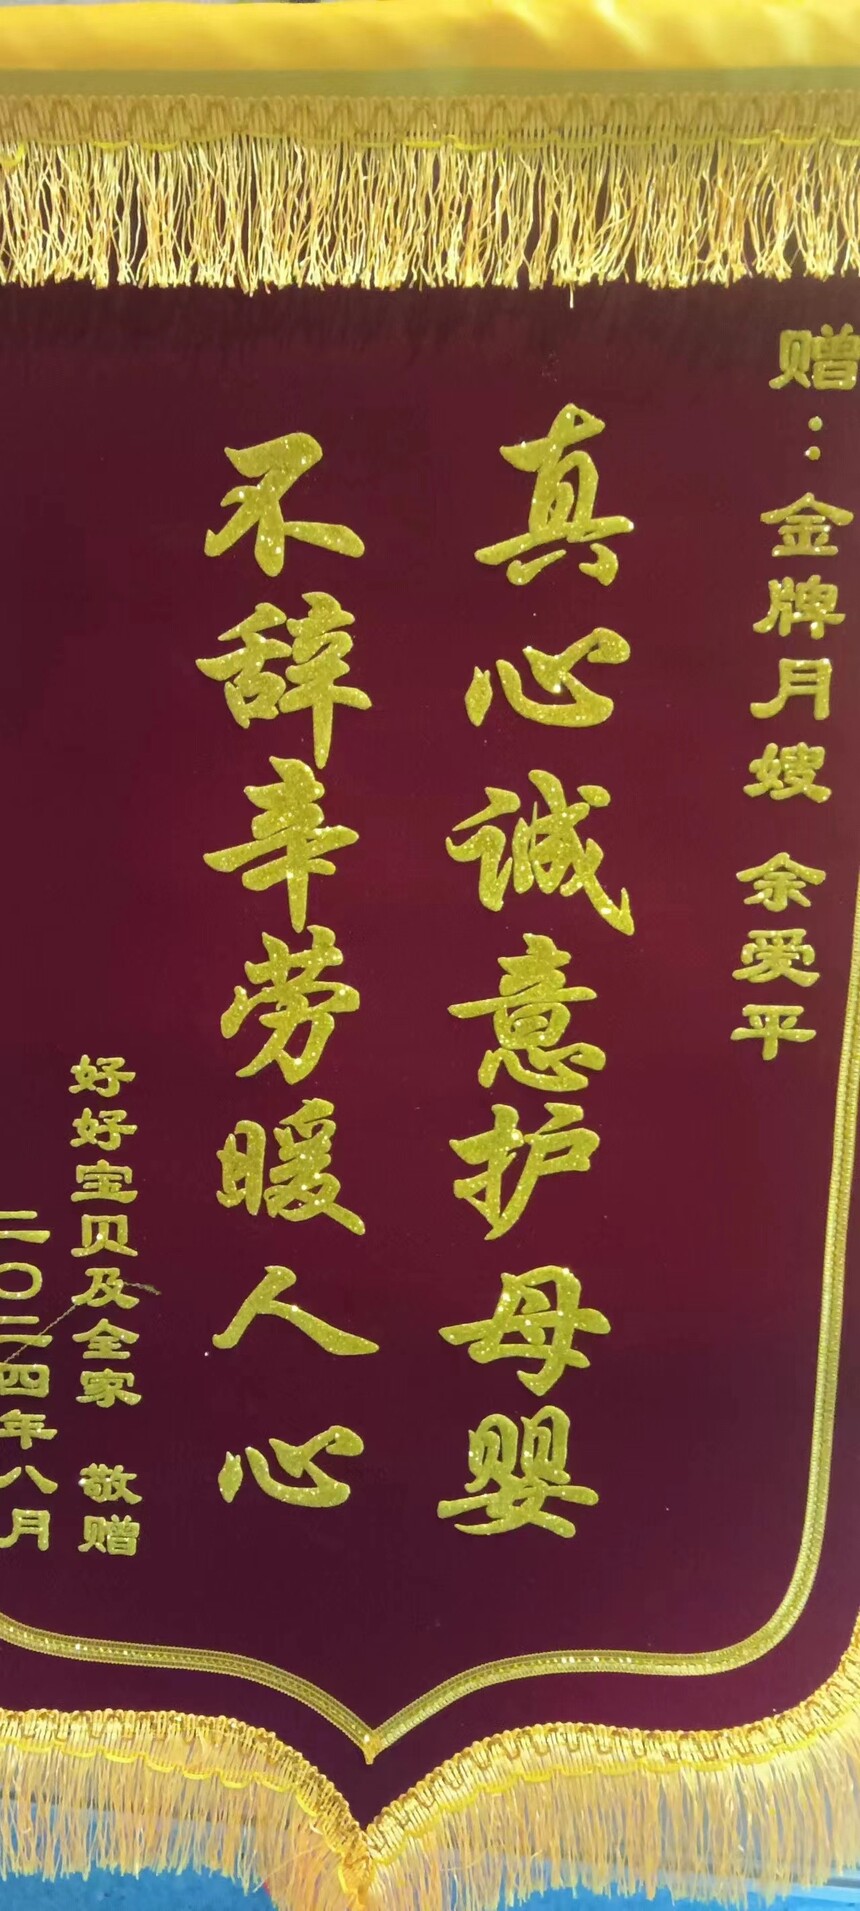 赠：金牌月嫂 余爱平
真心诚意护母婴
不辞辛劳暖人心
好好宝贝及全家 敬赠
二〇二四年八月